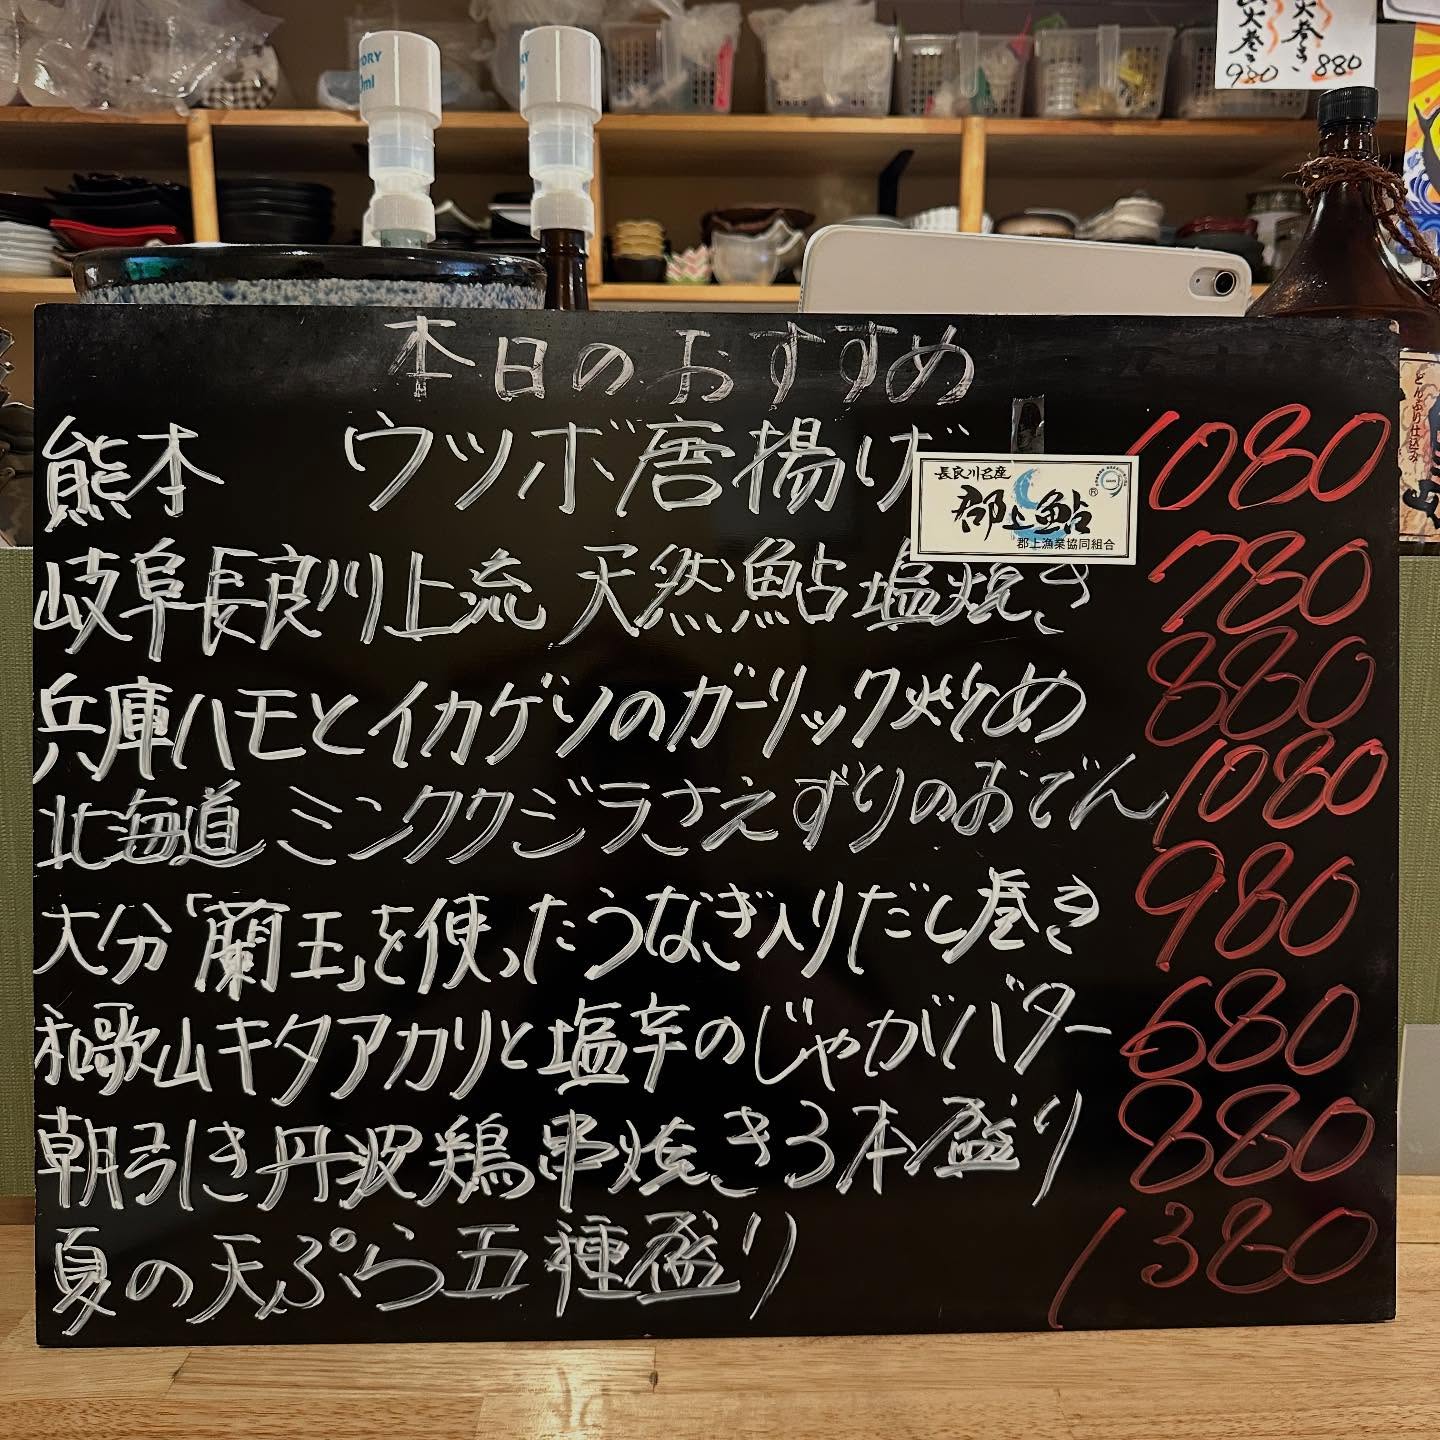 火巻き
980
火巻き
880
本日のおすすめ
熊本 ウツボ唐揚げ 1080
長良川名産
郡上鮎®
郡上漁業協同組合
岐阜長良川上流 天然鮎塩焼き 780
兵庫ハモとイカゲソのガーリック炒め 880
北海道 ミンククジラさえずりのおでん 1080
大分「蘭王」を使ったうなぎ入りだし巻き 980
和歌山キタアカリと塩辛のじゃがバター 680
朝引き丹波鶏串焼き3本盛り 880
夏の天ぷら五種盛り 1380
どんぶり仕込み